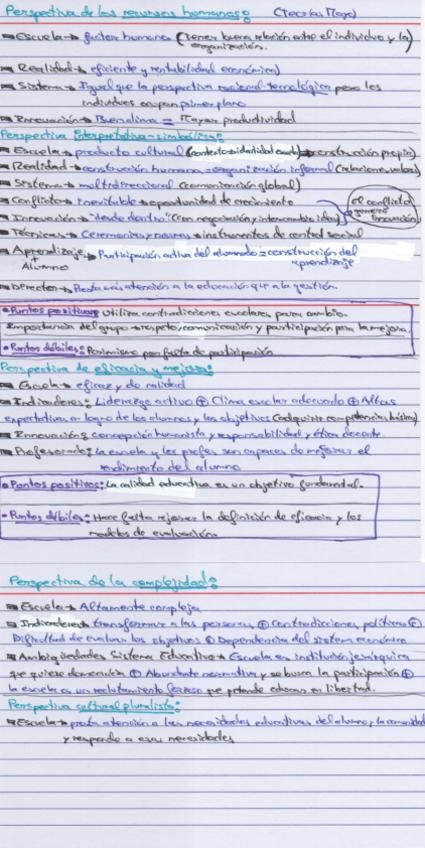 Perspectiva de los recursos humanos: (Teorías Mayo)
Escuela → factor humano (Tener buena relación entre el individuo y la
organización.
Realidad → eficiente y rentabilidad económica)
Sistema → Igual que la perspectiva racional-tecnológica pero los
individuos ocupan primer plano
Innovación → Buen clima = Mayor productividad
Perspectiva interpretativa-simbólica:
Escuela → producto cultural (contexto → identidad escuela → construcción propia)
Realidad → construcción humana = organización informal (relaciones, valores)
Sistema → multidireccional (comunicación global)
Conflicto → inevitable → oportunidad de crecimiento
el conflicto
genera
innovación
Innovación → "desde dentro" (con negociación y intercambio ideas)
Técnicas → Ceremonias y normas → instrumentos de control social
Aprendizaje → Participación activa del alumnado = construcción del
+ aprendizaje
Alumno
Director → Presta más atención a la educación que a la gestión.
Puntos positivos: Utiliza contradicciones escolares para cambio.
Importancia del grupo → respeto, comunicación y participación para la mejora.
Puntos débiles: Pesimismo por falta de participación
Perspectiva de eficacia y mejora:
Escuela → eficaz y de calidad
Indicadores: Liderazgo activo ⊕ Clima escolar adecuado ⊕ Altas
expectativas en logro de los alumnos y los objetivos (adquirir competencias básicas)
Innovación: concepción humanista y responsabilidad y ética docente.
Profesorado: la escuela y los profes son capaces de mejorar el
rendimiento del alumno
Puntos positivos: La calidad educativa es un objetivo fundamental.
Puntos débiles: Hace falta mejorar la definición de eficacia y los
modelos de evaluación.
Perspectiva de la complejidad:
Escuela → Altamente compleja
Indicadores: transformar a las personas, ⊕ Contradicciones políticas ⊕
Dificultad de evaluar los objetivos ⊕ Dependencia del sistema económico
Ambigüedades Sistema Educativo → Escuela es institución jerárquica
que quiere democracia ⊕ Abundante normativa y se busca la participación ⊕
la escuela es un reclutamiento forzoso que pretende educar en libertad.
Perspectiva cultural pluralista:
Escuela → presta atención a las necesidades educativas del alumno, la comunidad
y responde a esas necesidades